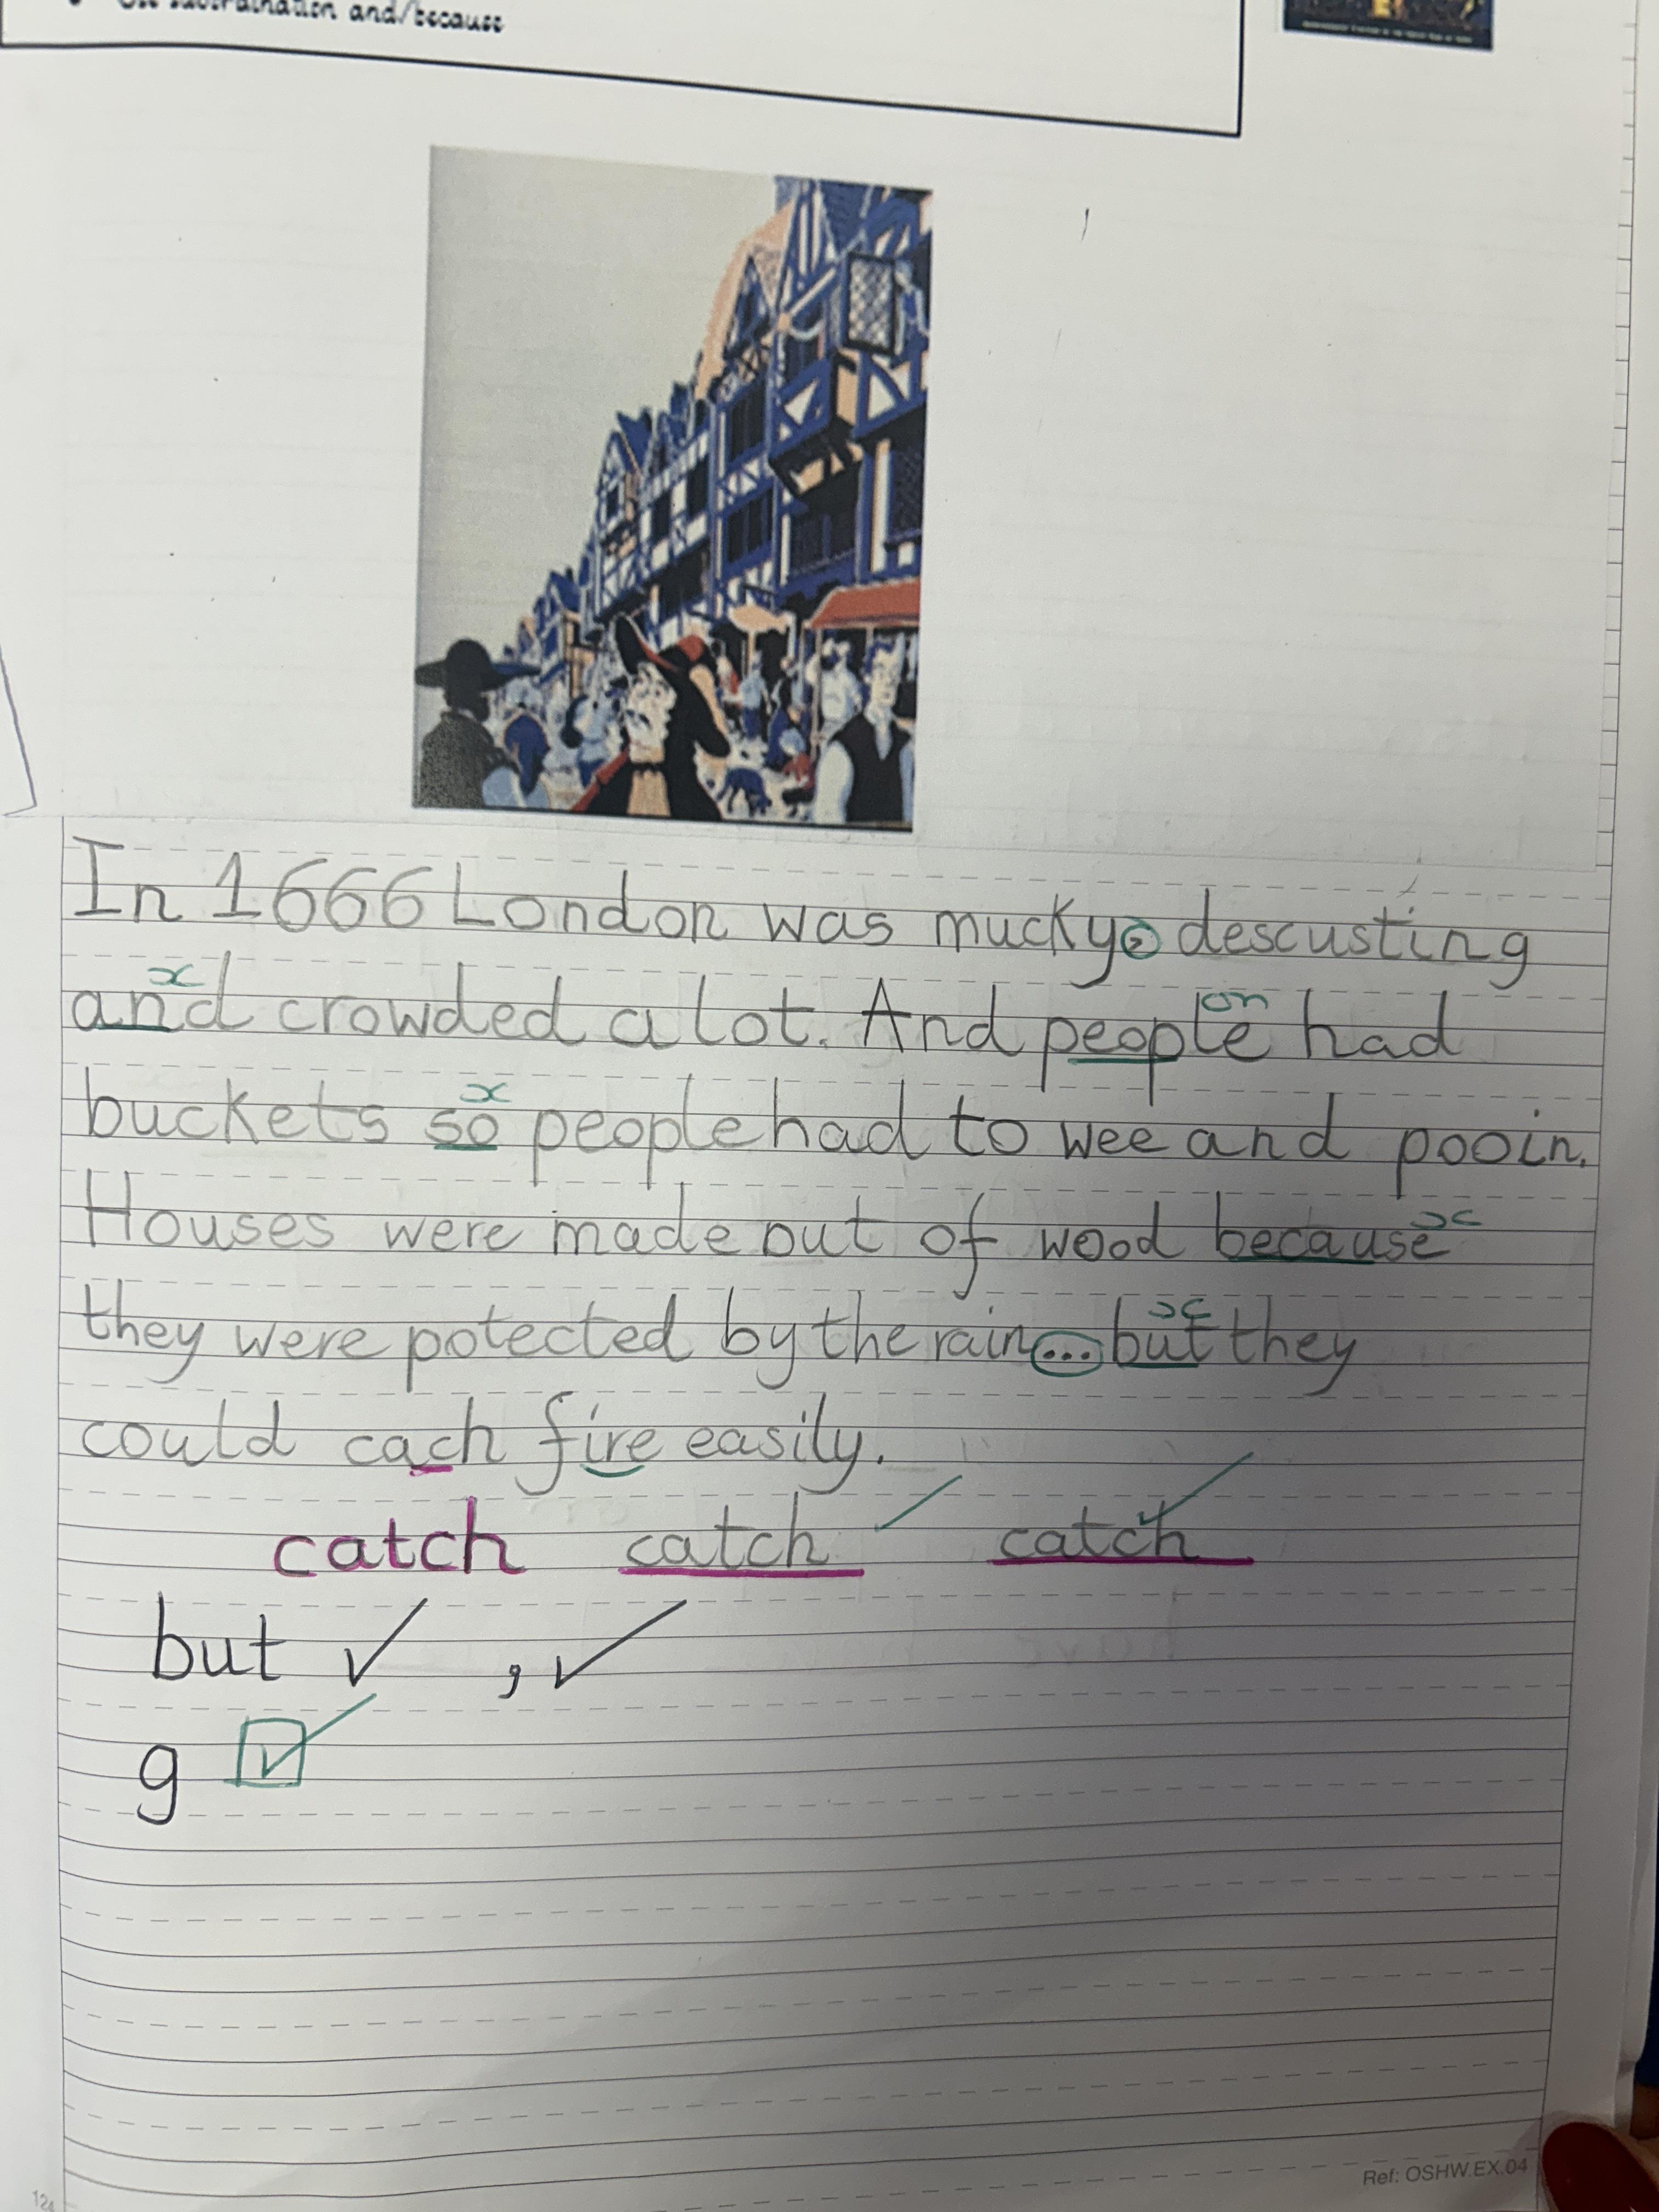 subordination and/because
In 1666 London was mucky, descusting
and crowded a lot. And people had
buckets so people had to wee and pooin.
Houses were made out of wood because
they were potected by the rain... but they
could cach fire easily.
catch catch catch
but ✓ , ✓
g ✓
Ref: OSHW.EX.04